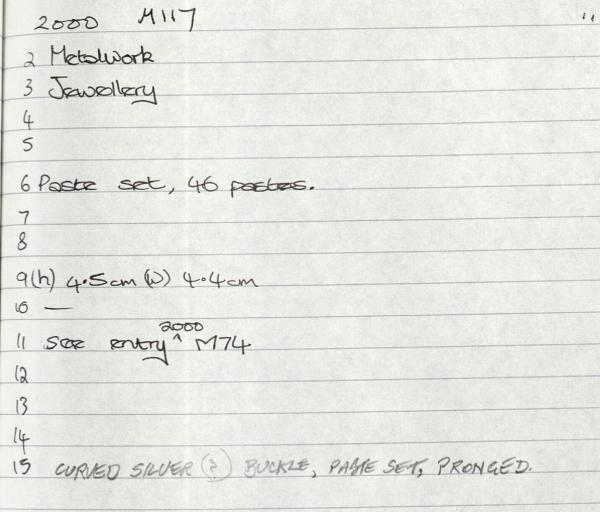 2000 M117
2 Metalwork
3 Jewellery
4
5
6 Paste set, 46 pastes.
7
8
9 (h) 4.5cm (w) 4.4cm
10 —
11 See entry ^ 2000 M74
12
13
14
15 CURVED SILVER (?) BUCKLE, PASTE SET, PRONGED.